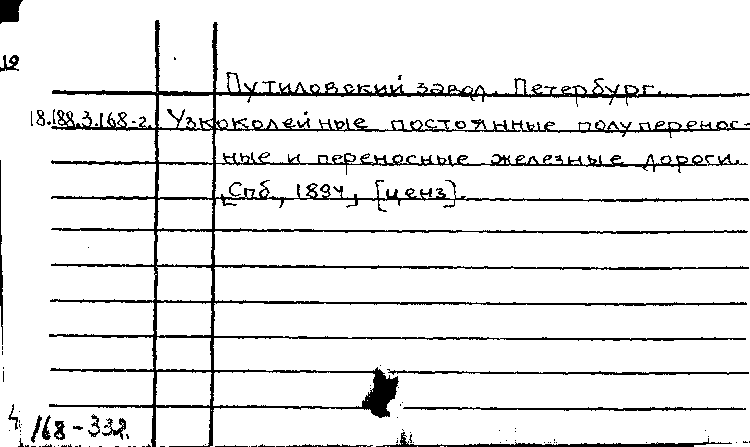 19
Путиловский завод. Петербург.
18.188.3.168-2. Узкоколейные постоянные полуперенос-
ные и переносные железные дороги.
[Спб., 1894], [ценз].
4 168-332.